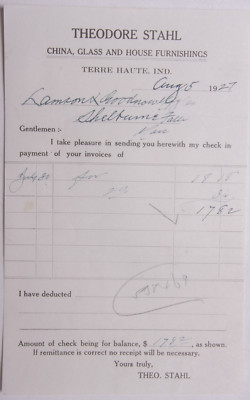 THEODORE STAHL
CHINA, GLASS AND HOUSE FURNISHINGS
TERRE HAUTE, IND.
Aug 5 1927
Lamson & Goodnow
Shelburne Falls
Gentlemen :-
I take pleasure in sending you herewith my check in
payment of your invoices of
18
1782
I have deducted
Amount of check being for balance, $ 1782, as shown.
If remittance is correct no receipt will be necessary.
Yours truly,
THEO. STAHL